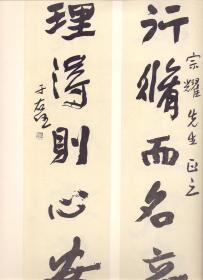 宗耀先生正之
行脩而名立
理得則心安
于右任